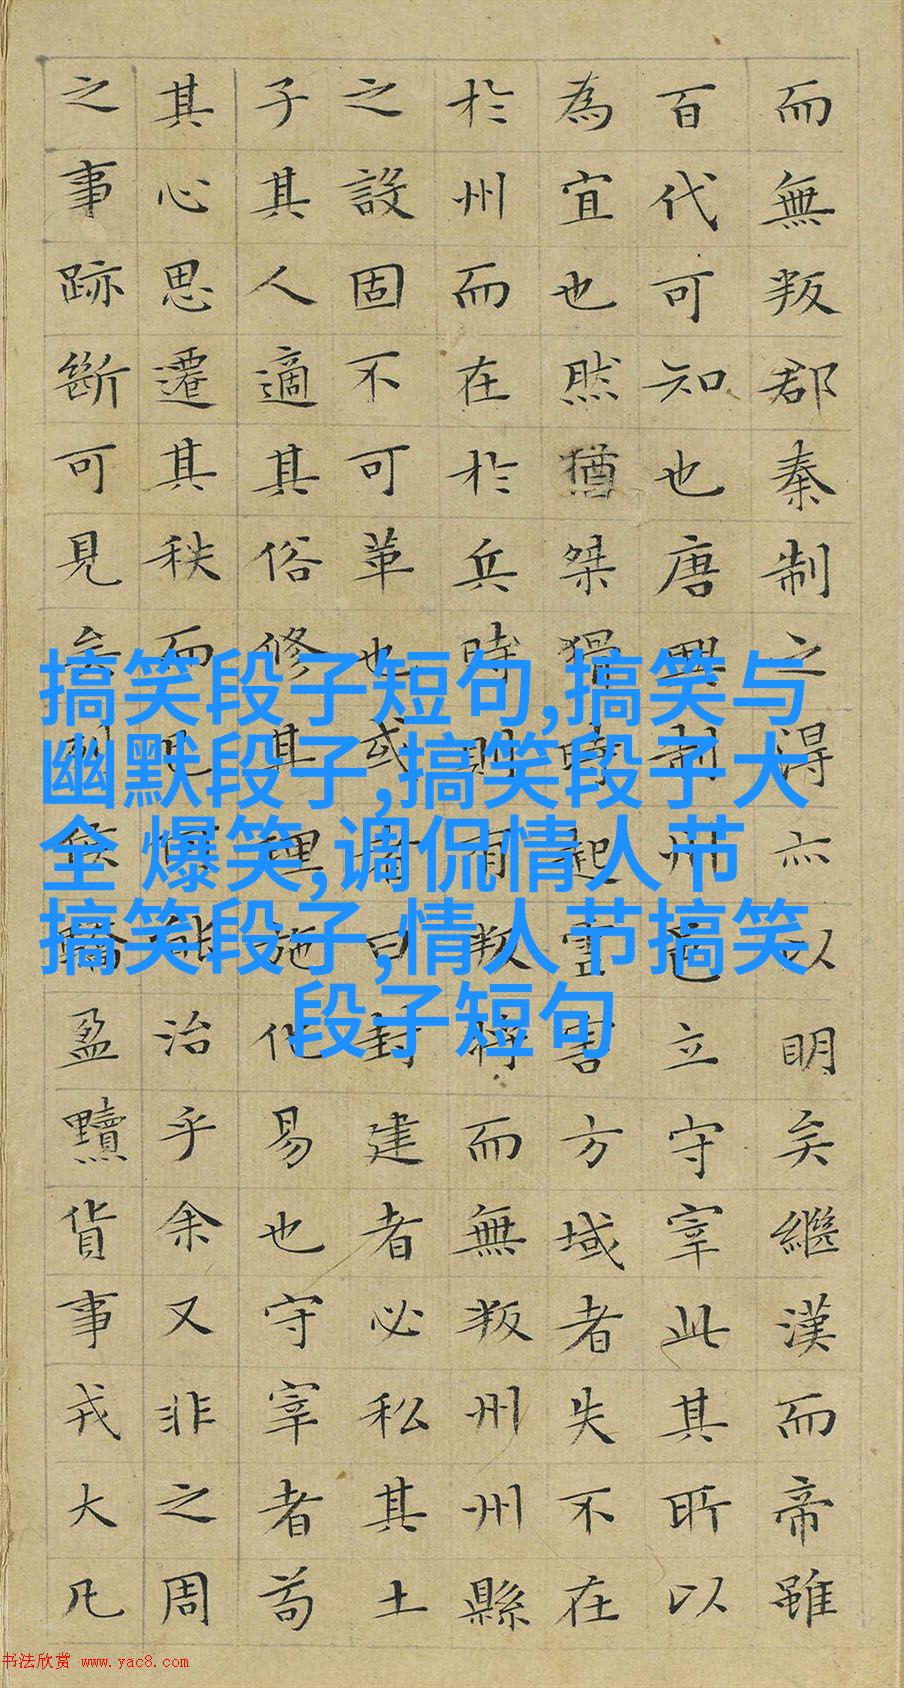 而無叛郡秦制之得亦以明矣繼漢而帝雖
百代可知也唐興制州邑立守宰此其所以
為宜也然猶桀猾時起虐害方域者失不在
於州而在於兵時則有叛將而無叛州州縣
之設固不可革也或者曰封建者必私其土
子其人適其俗修其理施化易也守宰者苟
其心思遷其秩而已何能治乎余又非之周
之事跡斷可見矣列侯驕盈黷貨事戎大凡
搞笑段子短句,搞笑与
幽默段子,搞笑段子大
全 爆笑,调侃情人节
搞笑段子,情人节搞笑
段子短句
书法欣赏 www.yac8.com